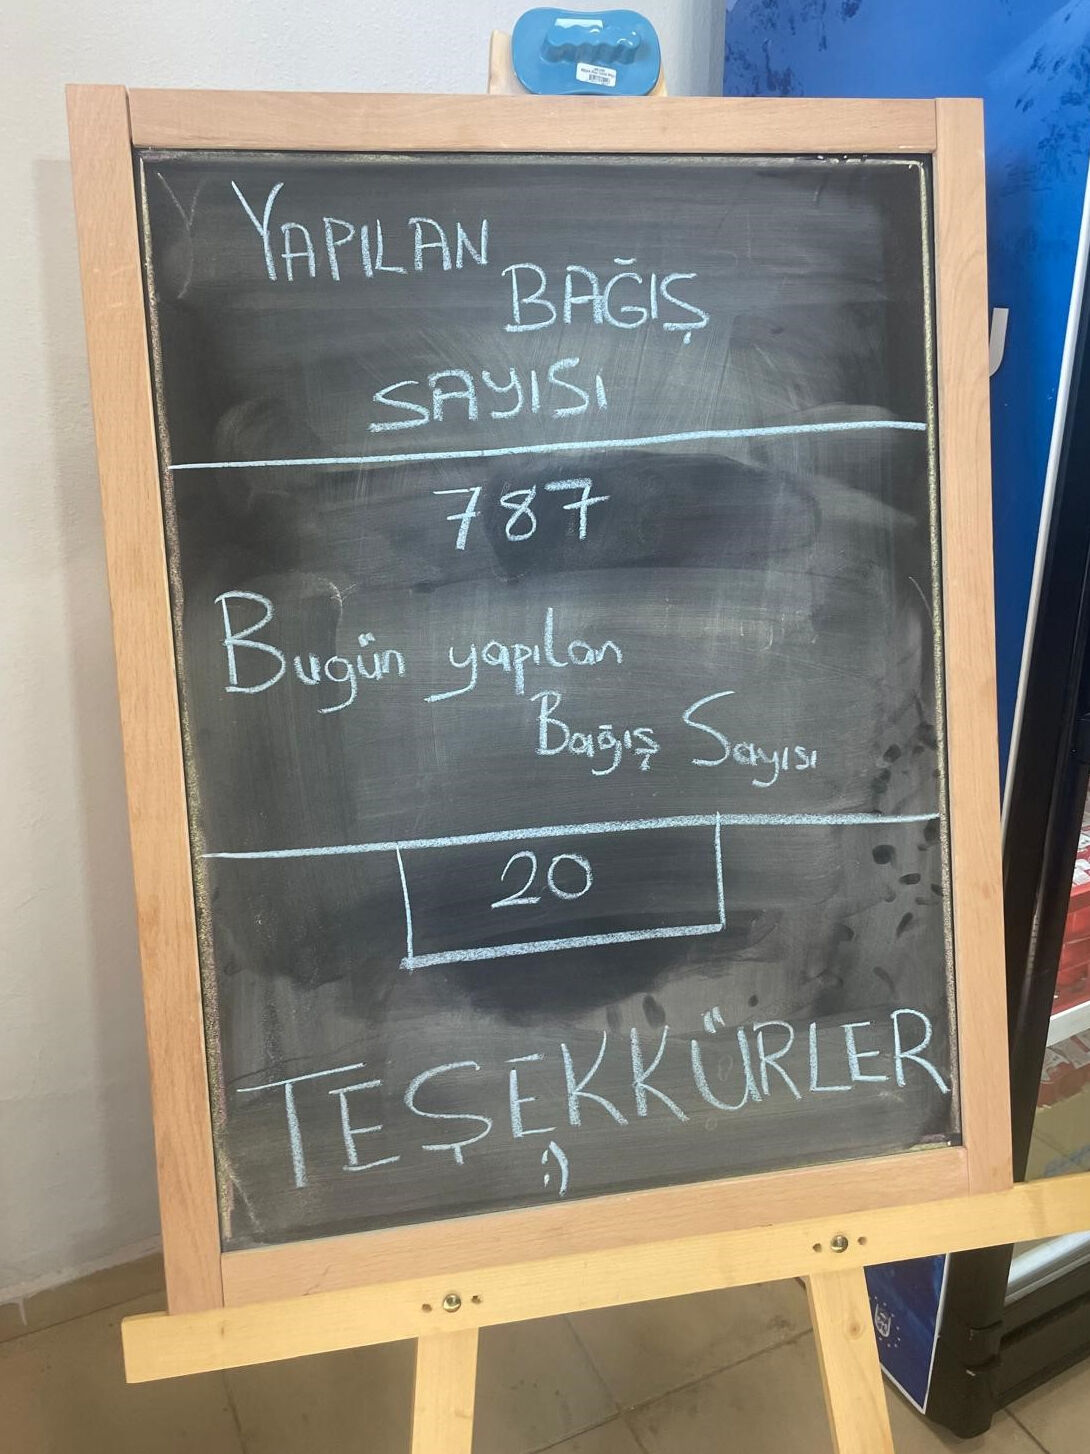 YAPILAN
BAĞIŞ
SAYISI
787
Bugün yapılan
Bağış Sayısı
20
TEŞEKKÜRLER
:)